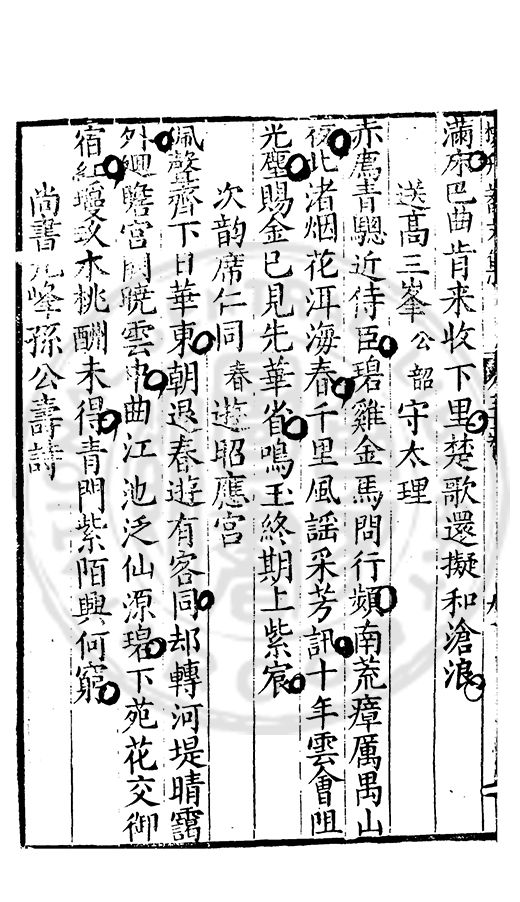 滿床巴曲肯来收下里楚歌還擬和滄浪
送髙三峯公韶守太理
赤霄青驄近侍臣碧雞金馬問行頻南荒瘴厲禺山
後此渚烟花洱海春千里風謡采芳訊十年雲會阻
光塵賜金已見先華省鳴玉終期上紫宸
次韵席仁同春遊昭應宫
珮聲齊下日華東朝退春遊有客同却轉河堤晴靄
外廻瞻宫闕曉雲中曲江池泛仙源碧下苑花交御
宿紅瓊玖木桃酬未得青門紫陌興何窮
尚書九峰孫公壽詩